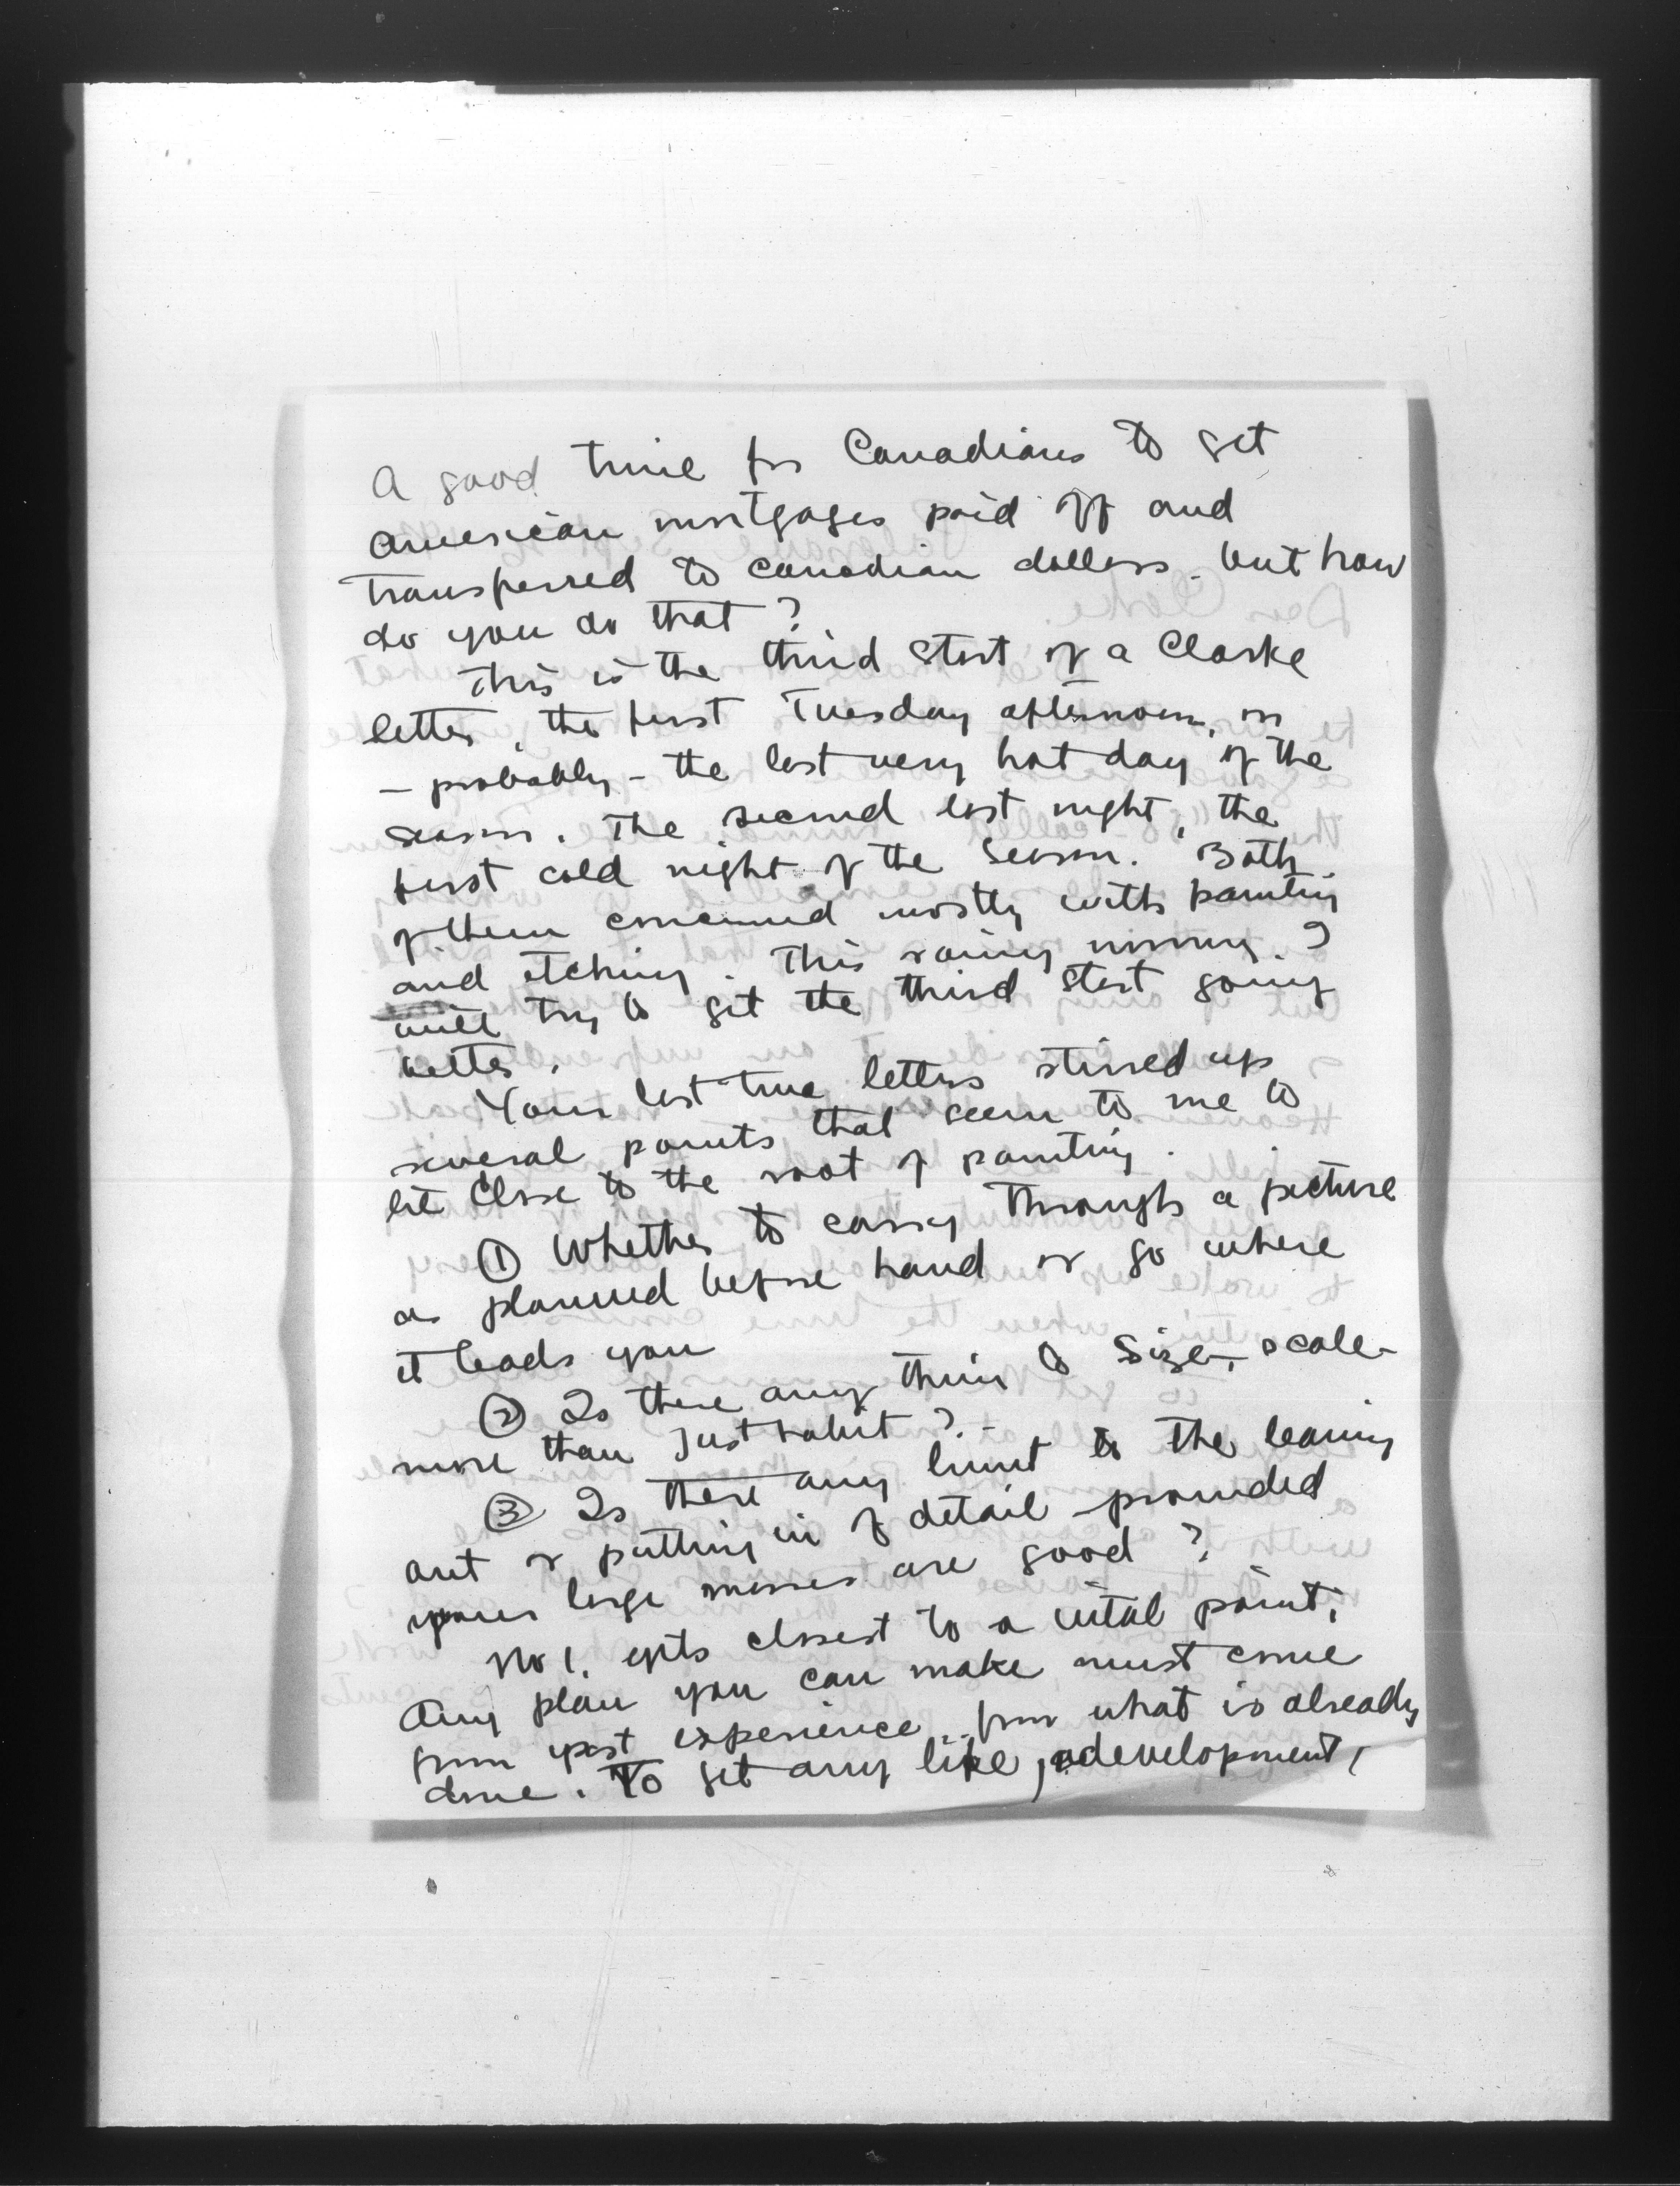 A good time for Canadians to get
American mortgages paid off and
transferred to Canadian dollars. but how
do you do that?
This is the third start of a Clarke
letter, the first Tuesday afternoon, on
- probably - the last very hot day of the
season. The second last night, the
first cold night of the season. Both
of them concerned mostly with painting
and etching. This rainy morning I
will try to get the third start going
better.
Your last two letters stirred up
several points that seem to me to
lie close to the root of painting.
① Whether to carry through a picture
as planned before hand or go where
it leads you
② Is there any thing to size, scale -
more than just habit? -
③ Is there any limit to the leaving
out or putting in of detail provided
your large masses are good?
No 1. gets closest to a vital point.
Any plan you can make must come
from past experience, from what is already
done. To get any life, development,